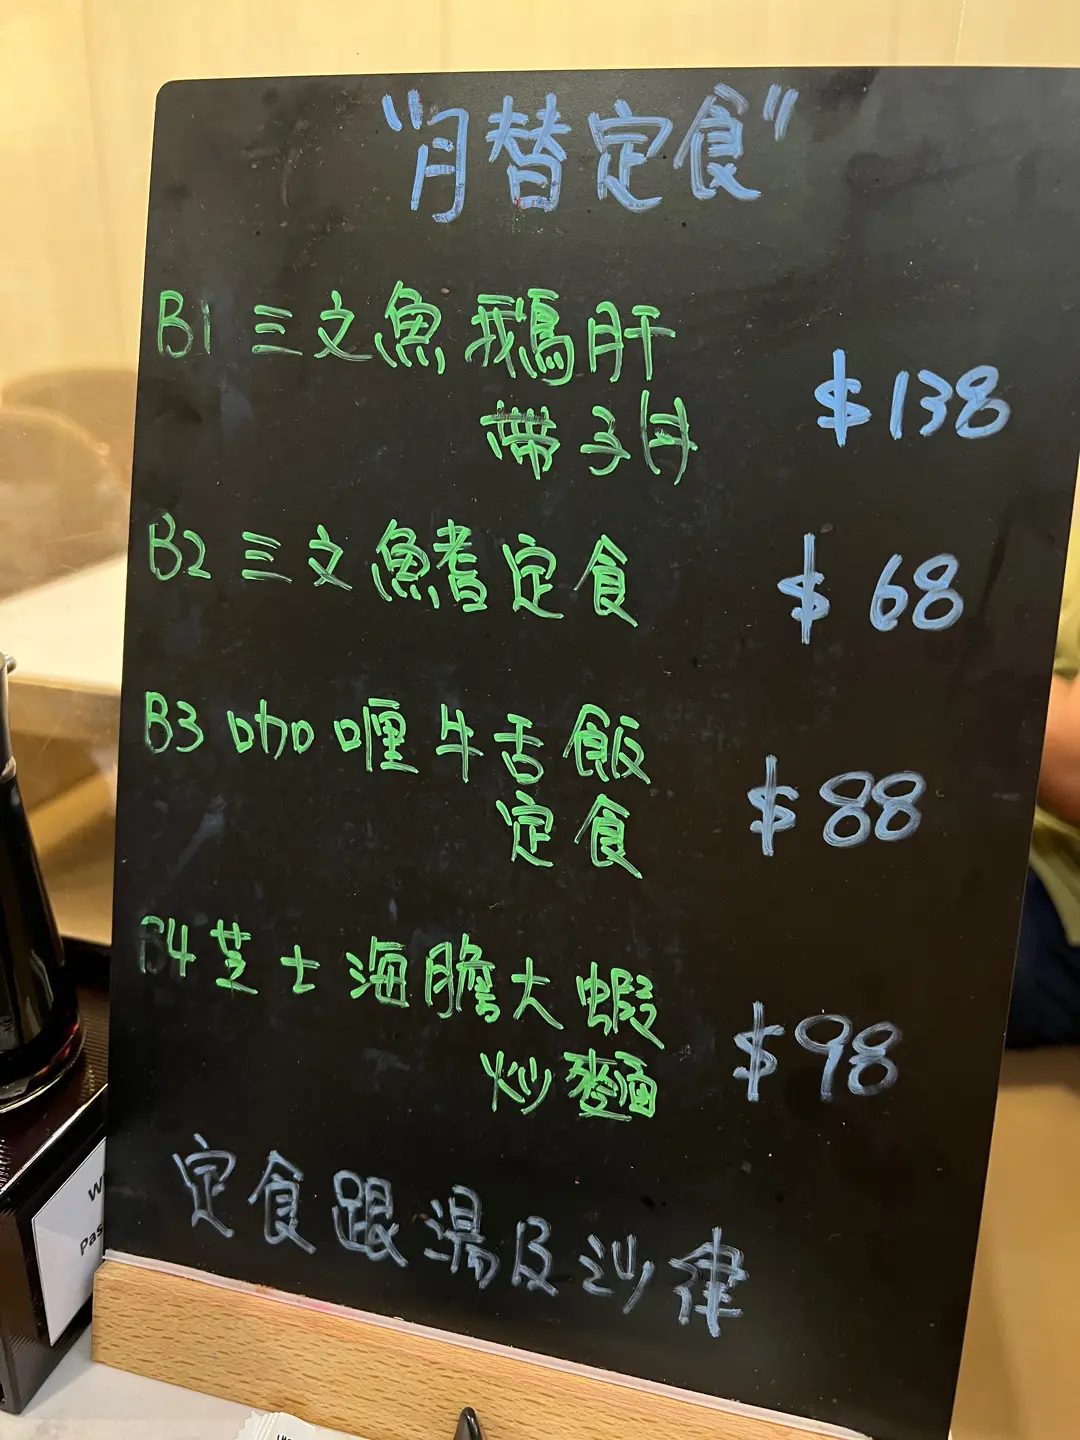 "月替定食"
B1 三文魚鵝肝
帶子丼
$138
B2 三文魚鰭定食
$68
B3 咖喱牛舌飯
定食
$88
B4 芝士海膽大蝦
炒麵
$98
定食跟湯及沙律
W
Pas